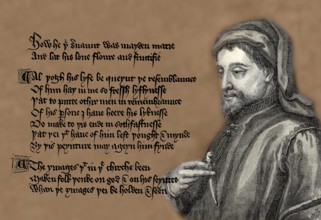 How he þe seruaunt was mayden marie
And lat his loue floure and fructifie
Al þogh his lyfe be queynt þe resemblaunce
Of him haþ in me so fressh lyflynesse
Þat to putte othir men in remembraunce
Of his persone I haue heere his lyknesse
Do make to þis ende in sothfastnesse
Þat þei þt haue of him lest þought & mynde
By þis peynture may ageyn him fynde
The ymages þt in þe chirche been
Maken folk þenke on god & on his seyntes
Whan þe ymages þei be holden & seen